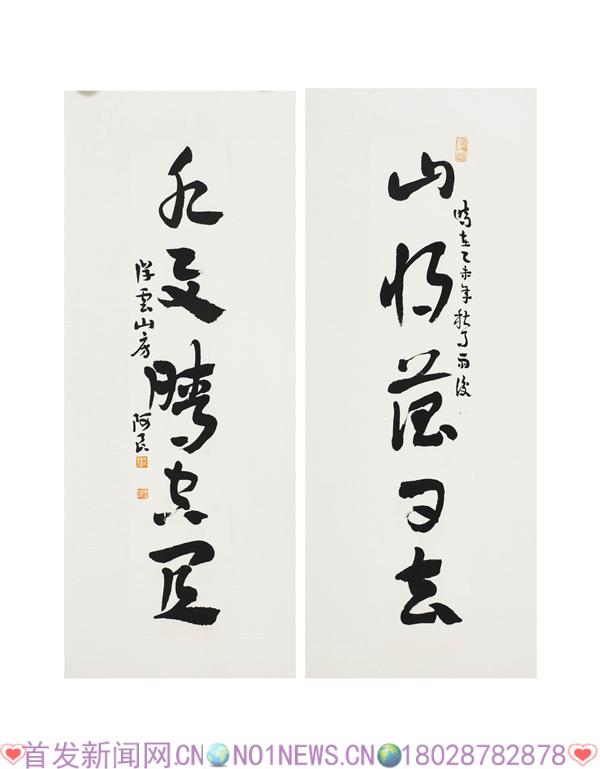 山将落日去
時在乙未年秋月雨後
水与晴空宜
浮雲山房 阿民
首发新闻网.CN NO1NEWS.CN 18028782878